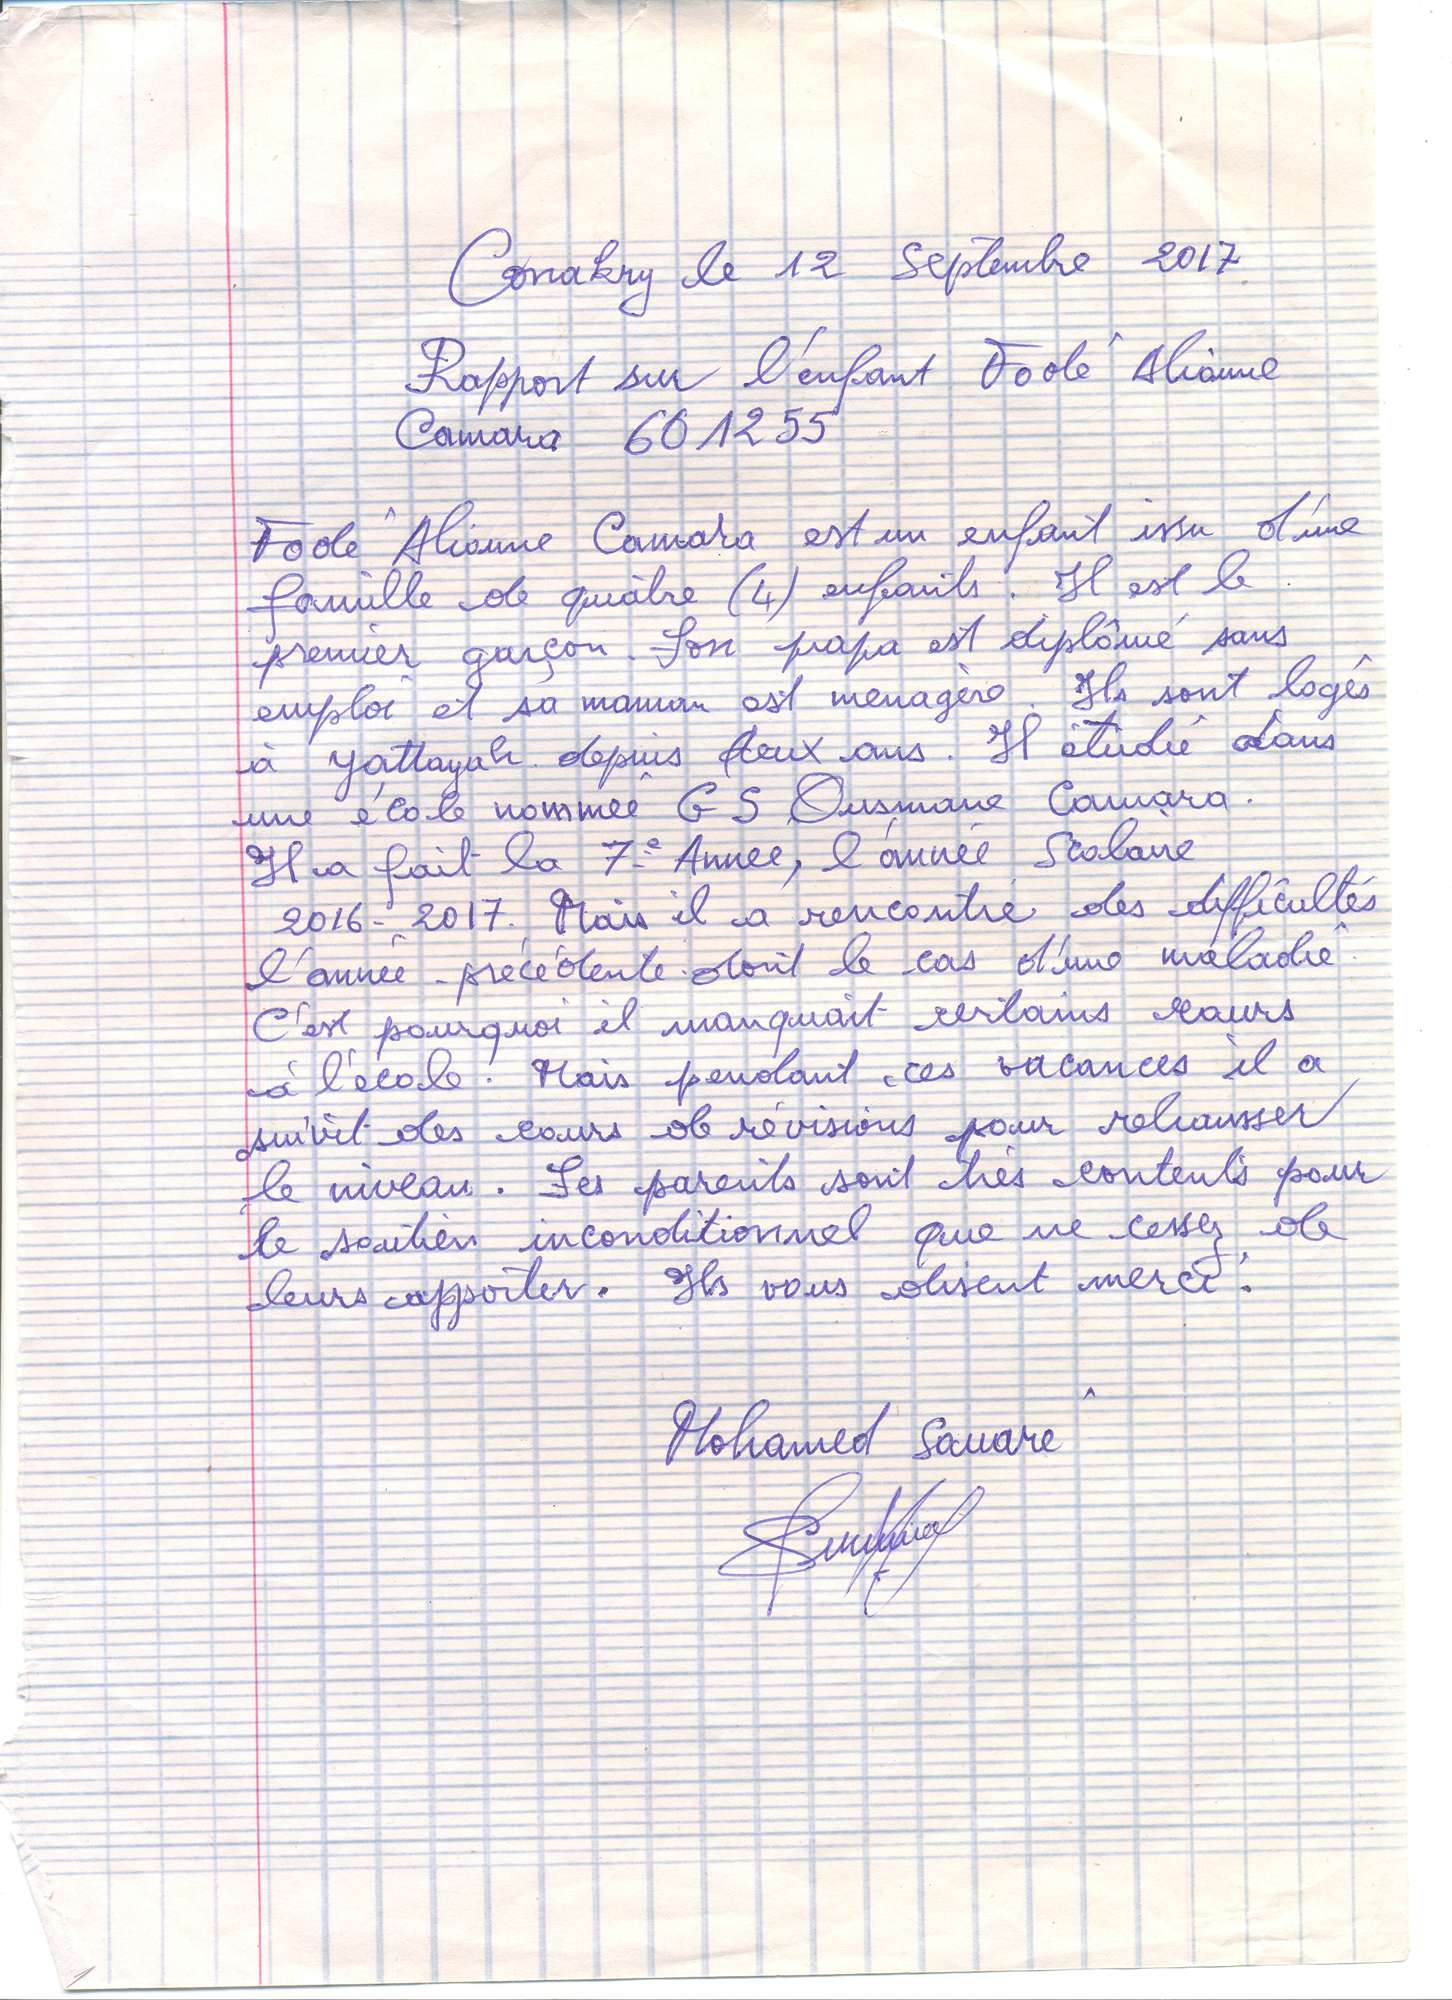 Conakry le 12 Septembre 2017
Rapport sur l'enfant Fodé Alioune
Camara 601255
Fodé Alioune Camara est un enfant issu d'une
famille de quatre (4) enfants. Il est le
premier garçon. Son papa est diplômé sans
emploi et sa maman est menagère. Ils sont logés
à yattayah depuis deux ans. Il étudié dans
une école nommée G S Ousmane Camara.
Il a fait la 7e Année, l'année Scolaire
2016-2017. Mais il a rencontré des difficultés
l'année précédente dont le cas d'une maladie.
C'est pourquoi il manquait certains cours
à l'école. Mais pendant ces vacances il a
suivit des cours de révisions pour rehausser
le niveau. Ses parents sont très contents pour
le soutien inconditionnel que ne cessez de
leurs apporter. Ils vous disent merci.
Mohamed Soumaré